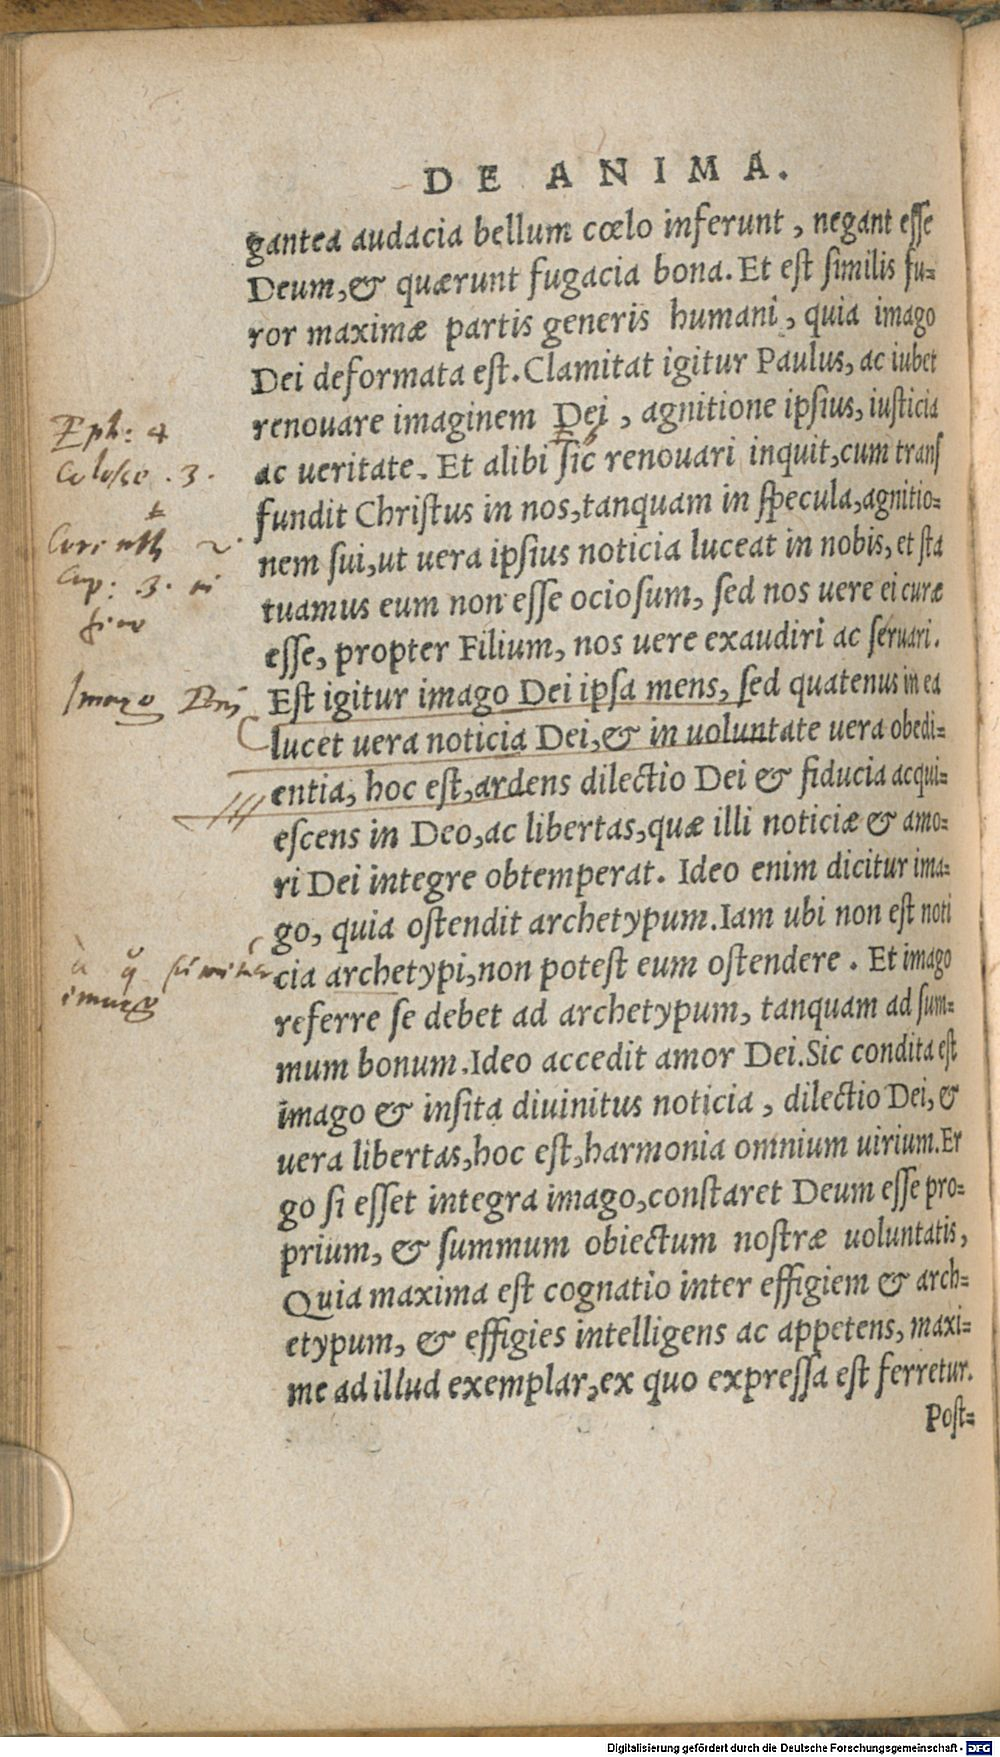 DE ANIMA.
gantea audacia bellum cœlo inferunt, negant eſſe
Deum, & quærunt fugacia bona. Et eſt ſimilis fu=
ror maximæ partis generis humani, quia imago
Dei deformata eſt. Clamitat igitur Paulus, ac iubet
renouare imaginem Dei, agnitione ipſius, iuſticia
ac ueritate. Et alibi ſic renouari inquit, cum tranſ
fundit Chriſtus in nos, tanquam in ſpecula, agnitio=
nem ſui, ut uera ipſius noticia luceat in nobis, et ſta
tuamus eum non eſſe ocioſum, ſed nos uere ei curæ
eſſe, propter Filium, nos uere exaudiri ac ſeruari.
Eſt igitur imago Dei ipſa mens, ſed quatenus in ea
lucet uera noticia Dei, & in uoluntate uera obedi=
entia, hoc eſt, ardens dilectio Dei & fiducia acqui=
eſcens in Deo, ac libertas, quæ illi noticiæ & amo=
ri Dei integre obtemperat. Ideo enim dicitur ima=
go, quia oſtendit archetypum. Iam ubi non eſt noti
cia archetypi, non poteſt eum oſtendere. Et imago
referre ſe debet ad archetypum, tanquam ad ſum=
mum bonum. Ideo accedit amor Dei. Sic condita eſt
imago & inſita diuinitus noticia, dilectio Dei, &
uera libertas, hoc eſt, harmonia omnium uirium. Er
go ſi eſſet integra imago, conſtaret Deum eſſe pro=
prium, & ſummum obiectum noſtræ uoluntatis,
Quia maxima eſt cognatio inter effigiem & arch=
etypum, & effigies intelligens ac appetens, maxi=
me ad illud exemplar, ex quo expreſſa eſt ferretur.
Poſt=
Eph: 4
Colosse. 3.
Corinth 2
Cap: 3. in
fine
Imago Dei
imago
Digitalisierung gefördert durch die Deutsche Forschungsgemeinschaft - DFG